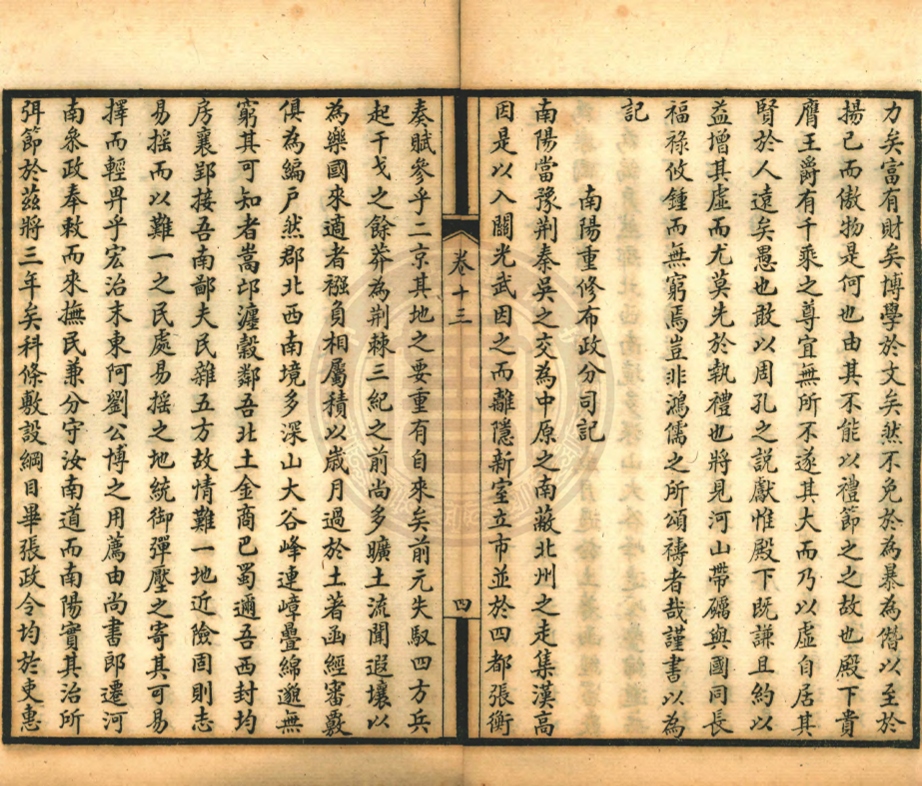 力矣富有財矣博學於文矣然不免於為暴為僭以至於
揚已而傲物是何也由其不能以禮節之之故也殿下貴
膺王爵有千乘之尊宜無所不遂其大而乃以虛自居其
賢於人遠矣愚也敢以周孔之説獻惟殿下既謙且約以
益增其虛而尤莫先於執禮也將見河山帶礪與國同長
福祿攸鍾而無窮焉豈非鴻儒之所頌禱者哉謹書以為
記
南陽重修布政分司記
南陽當豫荆秦吳之交為中原之南蔽北州之走集漢高
因是以入關光武因之而離隱新室立市並於四都張衡
卷十三
四
奏賦參乎二京其地之要重有自來矣前元失馭四方兵
起干戈之餘莽為荆棘三紀之前尚多曠土流聞遐壤以
為樂國來適者襁負相屬積以歲月過於土著函經審覈
俱為編戶然郡北西南境多深山大谷峰連嶂疊綿邈無
窮其可知者嵩邙瀍穀鄰吾北土金商巴蜀邇吾西封均
房襄郢接吾南鄙夫民雜五方故情難一地近險固則志
易揺而以難一之民處易揺之地統御彈壓之寄其可易
擇而輕畀乎宏治末東阿劉公博之用薦由尚書郎遷河
南叅政奉敕而來撫民兼分守汝南道而南陽實其治所
弭節於茲將三年矣科條敷設綱目畢張政令均於吏惠